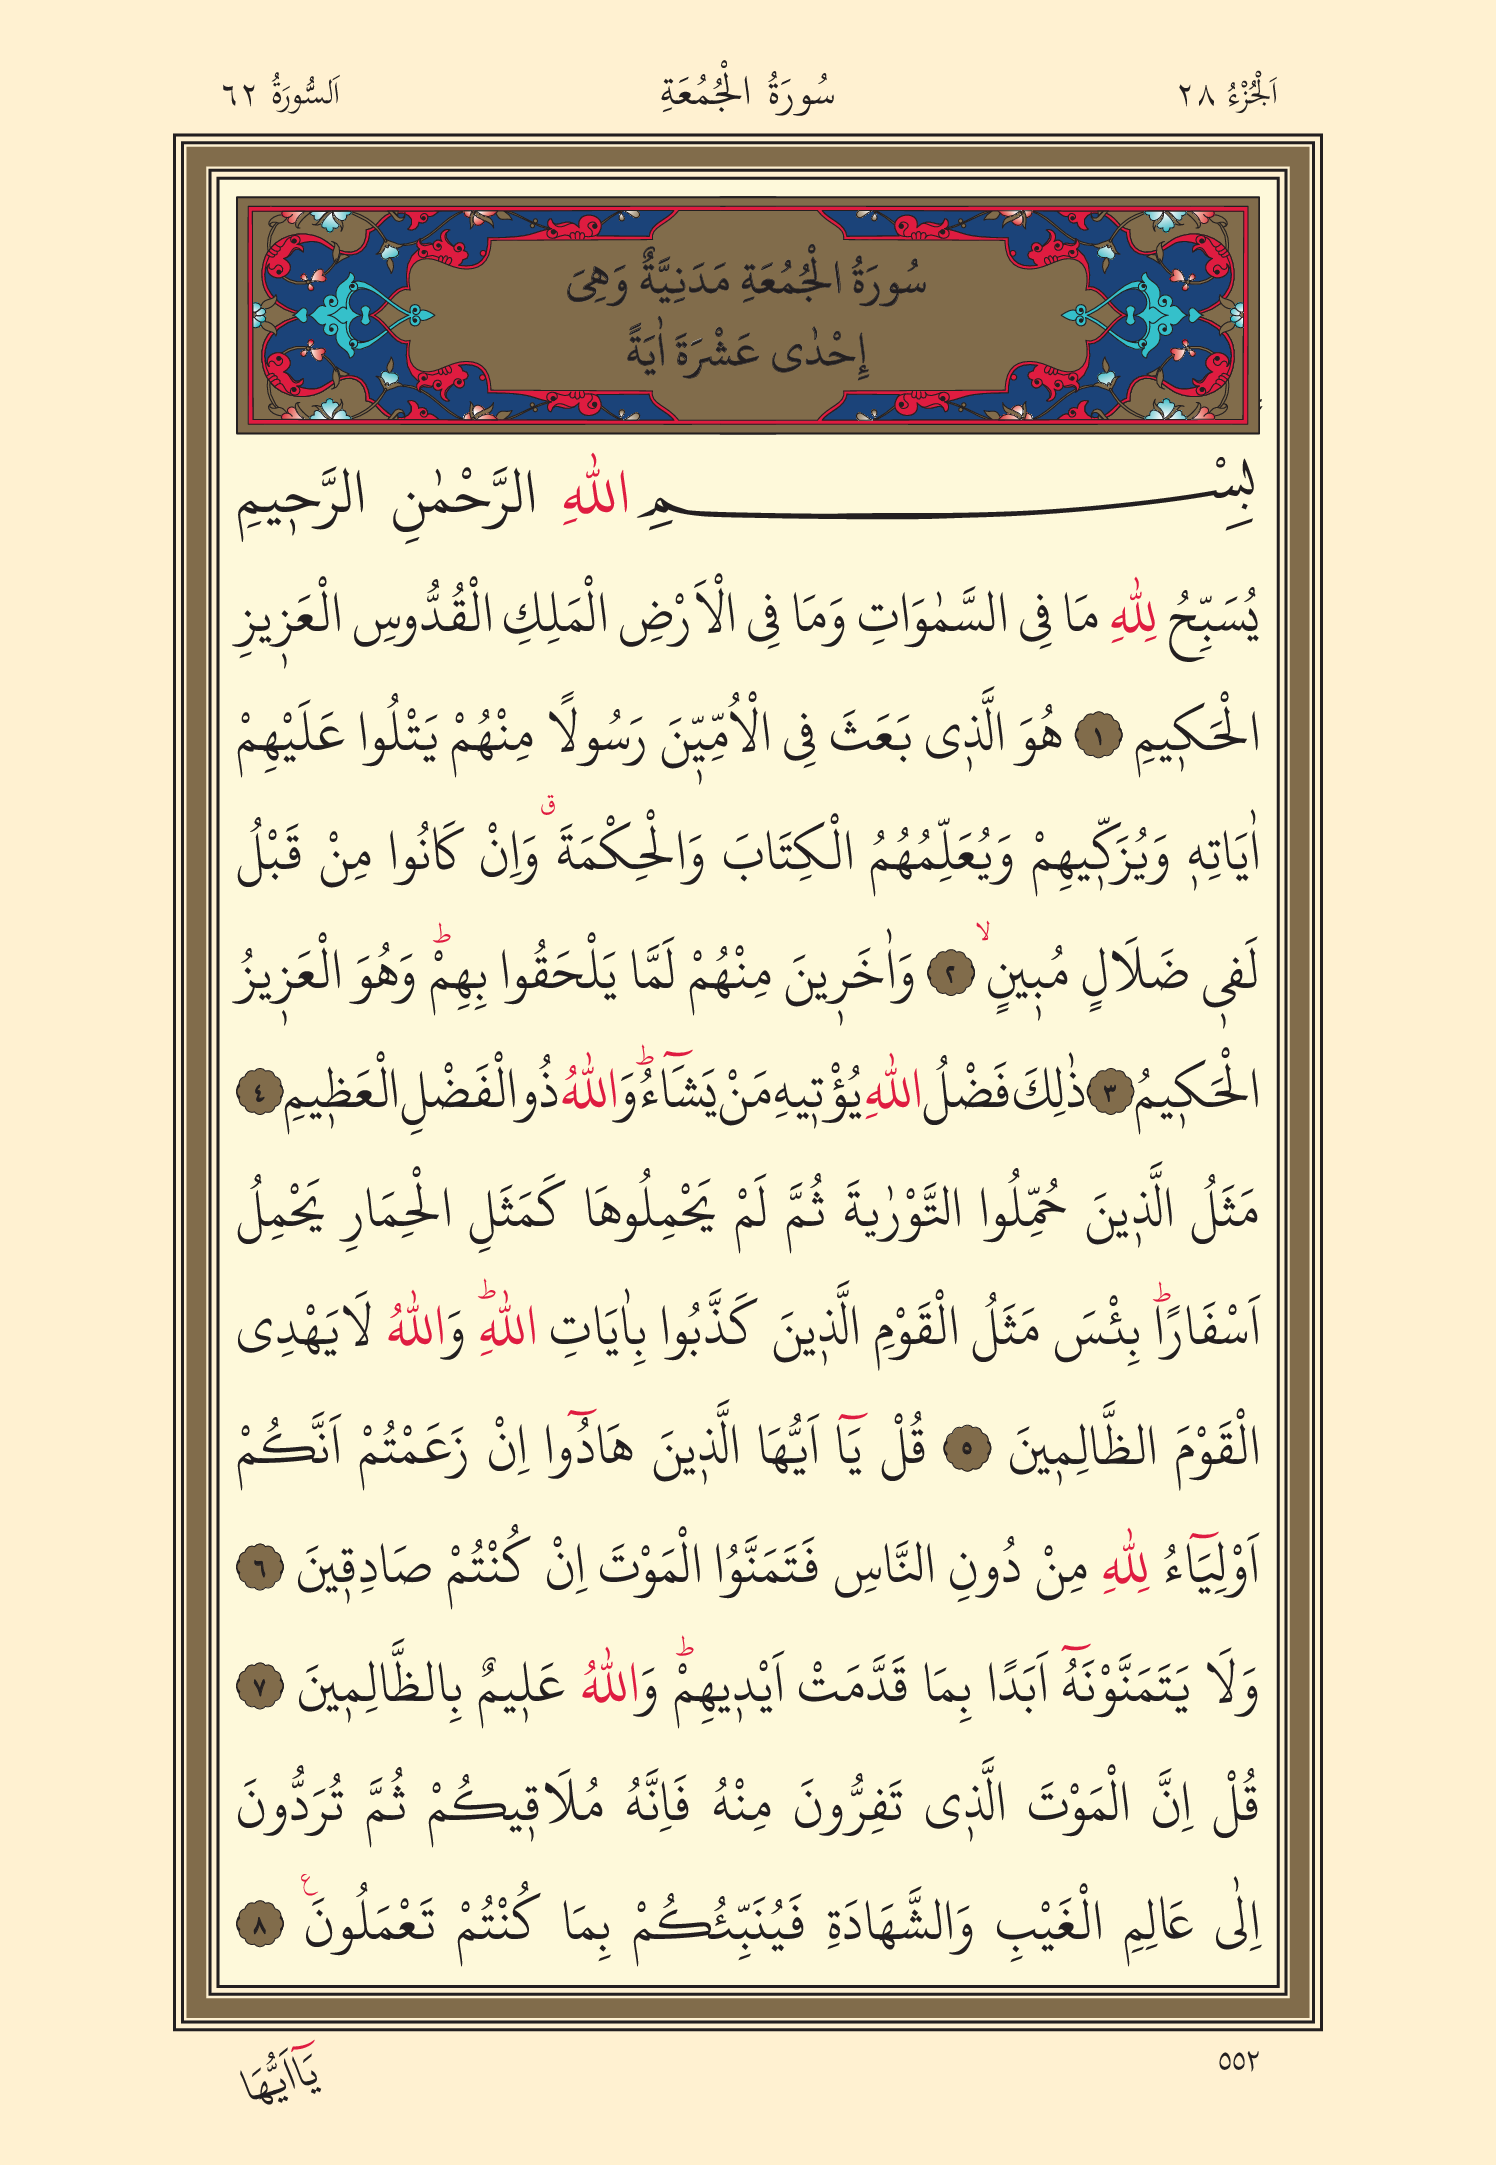 اَلْجُزْءُ ٢٨
سُورَةُ الْجُمُعَةِ
اَلسُّورَةُ ٦٢
سُورَةُ الْجُمُعَةِ مَدَنِيَّةٌ وَهِىَ
إِحْدٰى عَشْرَةَ اٰيَةً
بِسْــــــــــمِ اللّٰهِ الرَّحْمٰنِ الرَّحٖيمِ
يُسَبِّحُ لِلّٰهِ مَا فِى السَّمٰوَاتِ وَمَا فِى الْاَرْضِ الْمَلِكِ الْقُدُّوسِ الْعَزٖيزِ
الْحَكٖيمِ ١ هُوَ الَّذٖى بَعَثَ فِى الْاُمِّيّٖنَ رَسُولًا مِنْهُمْ يَتْلُوا عَلَيْهِمْ
اٰيَاتِهٖ وَيُزَكّٖيهِمْ وَيُعَلِّمُهُمُ الْكِتَابَ وَالْحِكْمَةَ ق وَاِنْ كَانُوا مِنْ قَبْلُ
لَفٖى ضَلَالٍ مُبٖينٍ لا ٢ وَاٰخَرٖينَ مِنْهُمْ لَمَّا يَلْحَقُوا بِهِمْ ط وَهُوَ الْعَزٖيزُ
الْحَكٖيمُ ٣ ذٰلِكَ فَضْلُ اللّٰهِ يُؤْتٖيهِ مَنْ يَشَٓاءُ ط وَاللّٰهُ ذُو الْفَضْلِ الْعَظٖيمِ ٤
مَثَلُ الَّذٖينَ حُمِّلُوا التَّوْرٰيةَ ثُمَّ لَمْ يَحْمِلُوهَا كَمَثَلِ الْحِمَارِ يَحْمِلُ
اَسْفَارًا ط بِئْسَ مَثَلُ الْقَوْمِ الَّذٖينَ كَذَّبُوا بِاٰيَاتِ اللّٰهِ ط وَاللّٰهُ لَا يَهْدِى
الْقَوْمَ الظَّالِمٖينَ ٥ قُلْ يَٓا اَيُّهَا الَّذٖينَ هَادُٓوا اِنْ زَعَمْتُمْ اَنَّكُمْ
اَوْلِيَٓاءُ لِلّٰهِ مِنْ دُونِ النَّاسِ فَتَمَنَّوُا الْمَوْتَ اِنْ كُنْتُمْ صَادِقٖينَ ٦
وَلَا يَتَمَنَّوْنَهُٓ اَبَدًا بِمَا قَدَّمَتْ اَيْدٖيهِمْ ط وَاللّٰهُ عَلٖيمٌ بِالظَّالِمٖينَ ٧
قُلْ اِنَّ الْمَوْتَ الَّذٖى تَفِرُّونَ مِنْهُ فَاِنَّهُ مُلَاقٖيكُمْ ثُمَّ تُرَدُّونَ
اِلٰى عَالِمِ الْغَيْبِ وَالشَّهَادَةِ فَيُنَبِّئُكُمْ بِمَا كُنْتُمْ تَعْمَلُونَ ع ٨
٥٥٢
يَٓا اَيُّهَا